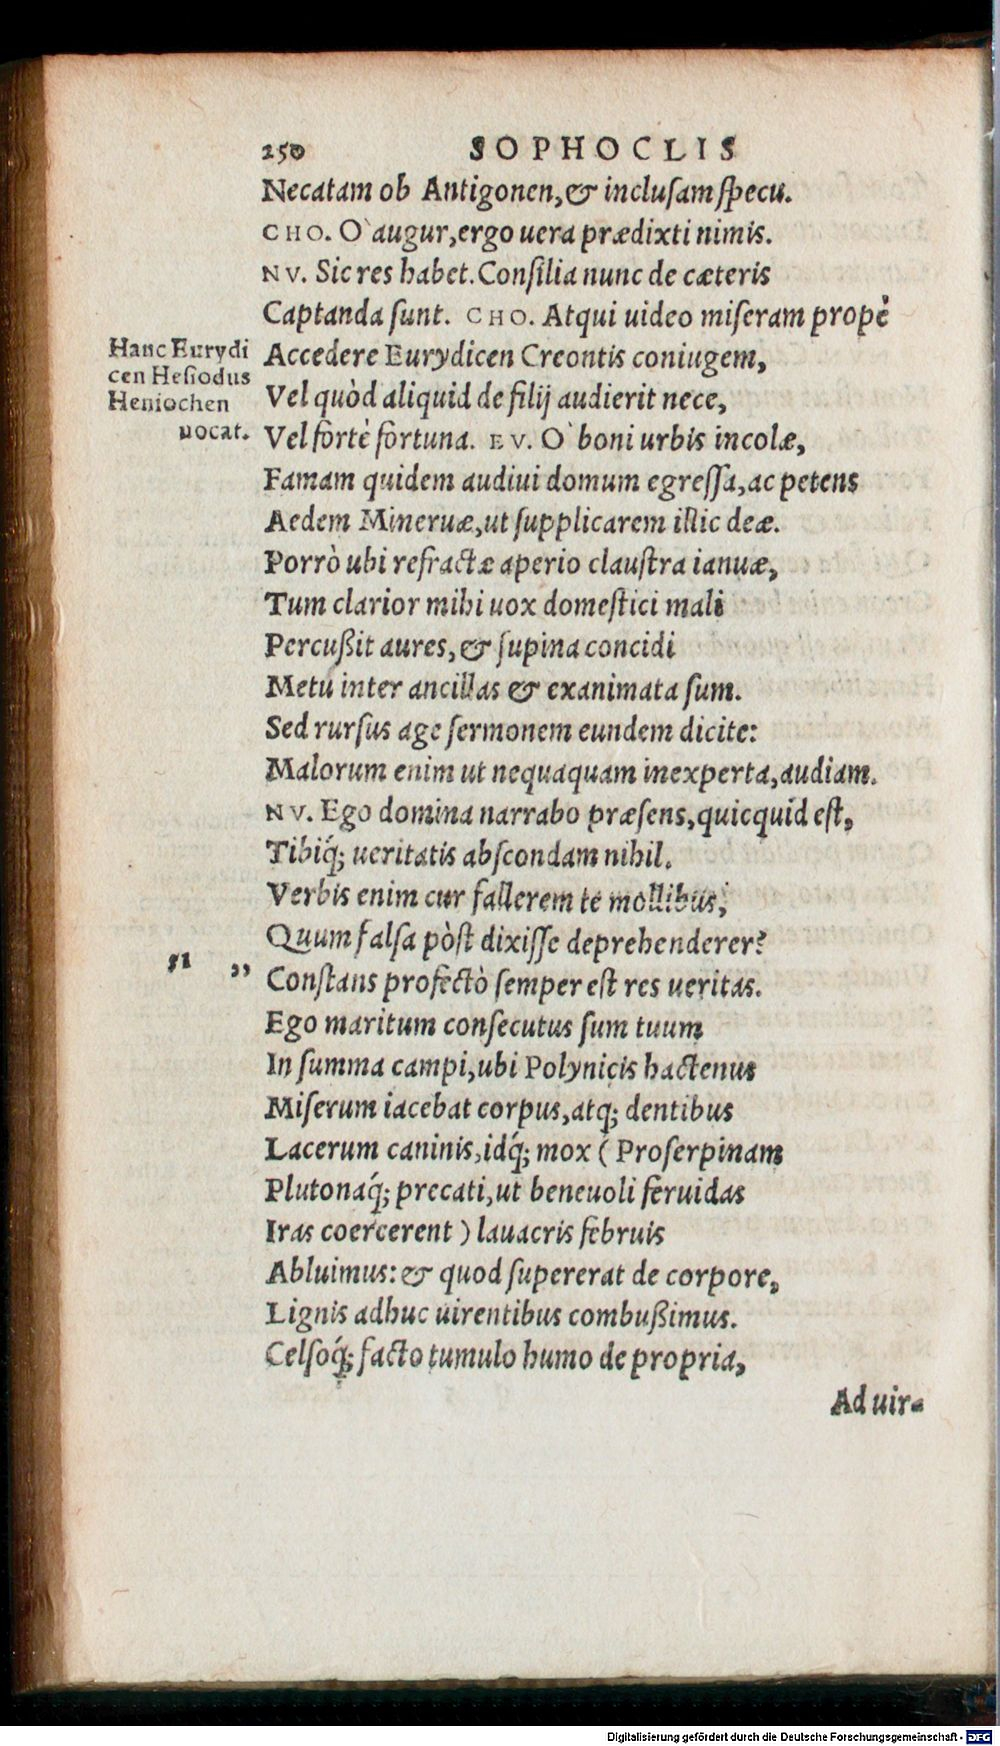 250 SOPHOCLIS
Necatam ob Antigonen, & inclusam specu.
CHO. O` augur, ergo uera prædixti nimis.
NV. Sic res habet. Consilia nunc de cæteris
Captanda sunt. CHO. Atqui uideo miseram propè
Hanc Eurydi
cen Hesiodus
Heniochen
uocat.
Accedere Eurydicen Creontis coniugem,
Vel quòd aliquid de filij audierit nece,
Vel fortè fortuna. EV. O` boni urbis incolæ,
Famam quidem audiui domum egressa, ac petens
Aedem Mineruæ, ut supplicarem illic deæ.
Porrò ubi refractæ aperio claustra ianuæ,
Tum clarior mihi uox domestici mali
Percußit aures, & supina concidi
Metu inter ancillas & exanimata sum.
Sed rursus age sermonem eundem dicite:
Malorum enim ut nequaquam inexperta, audiam.
NV. Ego domina narrabo præsens, quicquid est,
Tibiq́; ueritatis abscondam nihil.
Verbis enim cur fallerem te mollibus,
Quum falsa pòst dixisse deprehenderer?
51 ,, Constans profectò semper est res ueritas.
Ego maritum consecutus sum tuum
In summa campi, ubi Polynicis hactenus
Miserum iacebat corpus, atq; dentibus
Lacerum caninis, idq́; mox ( Proserpinam
Plutonaq́; precati, ut beneuoli feruidas
Iras coercerent ) lauacris februis
Abluimus: & quod supererat de corpore,
Lignis adhuc uirentibus combußimus.
Celsoq́; facto tumulo humo de propria,
Ad uir-
Digitalisierung gefördert durch die Deutsche Forschungsgemeinschaft - DFG